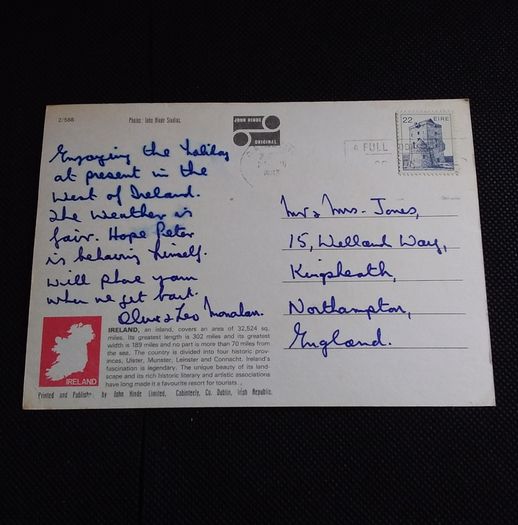 2/588
Photo: John Hinde Studios.
JOHN HINDE
ORIGINAL
22 EIRE
A FULL
Enjoying the holiday
at present in the
West of Ireland.
The Weather is
fair. Hope Peter
is behaving himself.
Will phone
when we get back.
Leo Monahan.
Mr & Mrs. Jones,
15, Welland Way,
Kingsheath,
Northampton,
England.
IRELAND, an island, covers an area of 32,524 sq.
miles. Its greatest length is 302 miles and its greatest
width is 189 miles and no part is more than 70 miles from
the sea. The country is divided into four historic prov-
inces, Ulster, Munster, Leinster and Connacht. Ireland's
fascination is legendary. The unique beauty of its land-
scape and its rich historic literary and artistic associations
have long made it a favourite resort for tourists.
IRELAND
Printed and by John Hinde Limited, Cabinteely, Co. Dublin, Irish Republic.